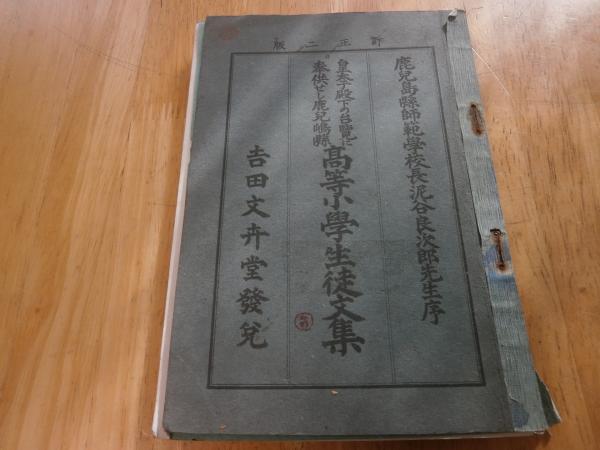 訂正二版
鹿兒島縣師範學校長泥谷良次郎先生序
皇太子殿下の台覽に
奉供せし鹿兒嶋縣
高等小學生徒文集
吉田文弁堂發兌